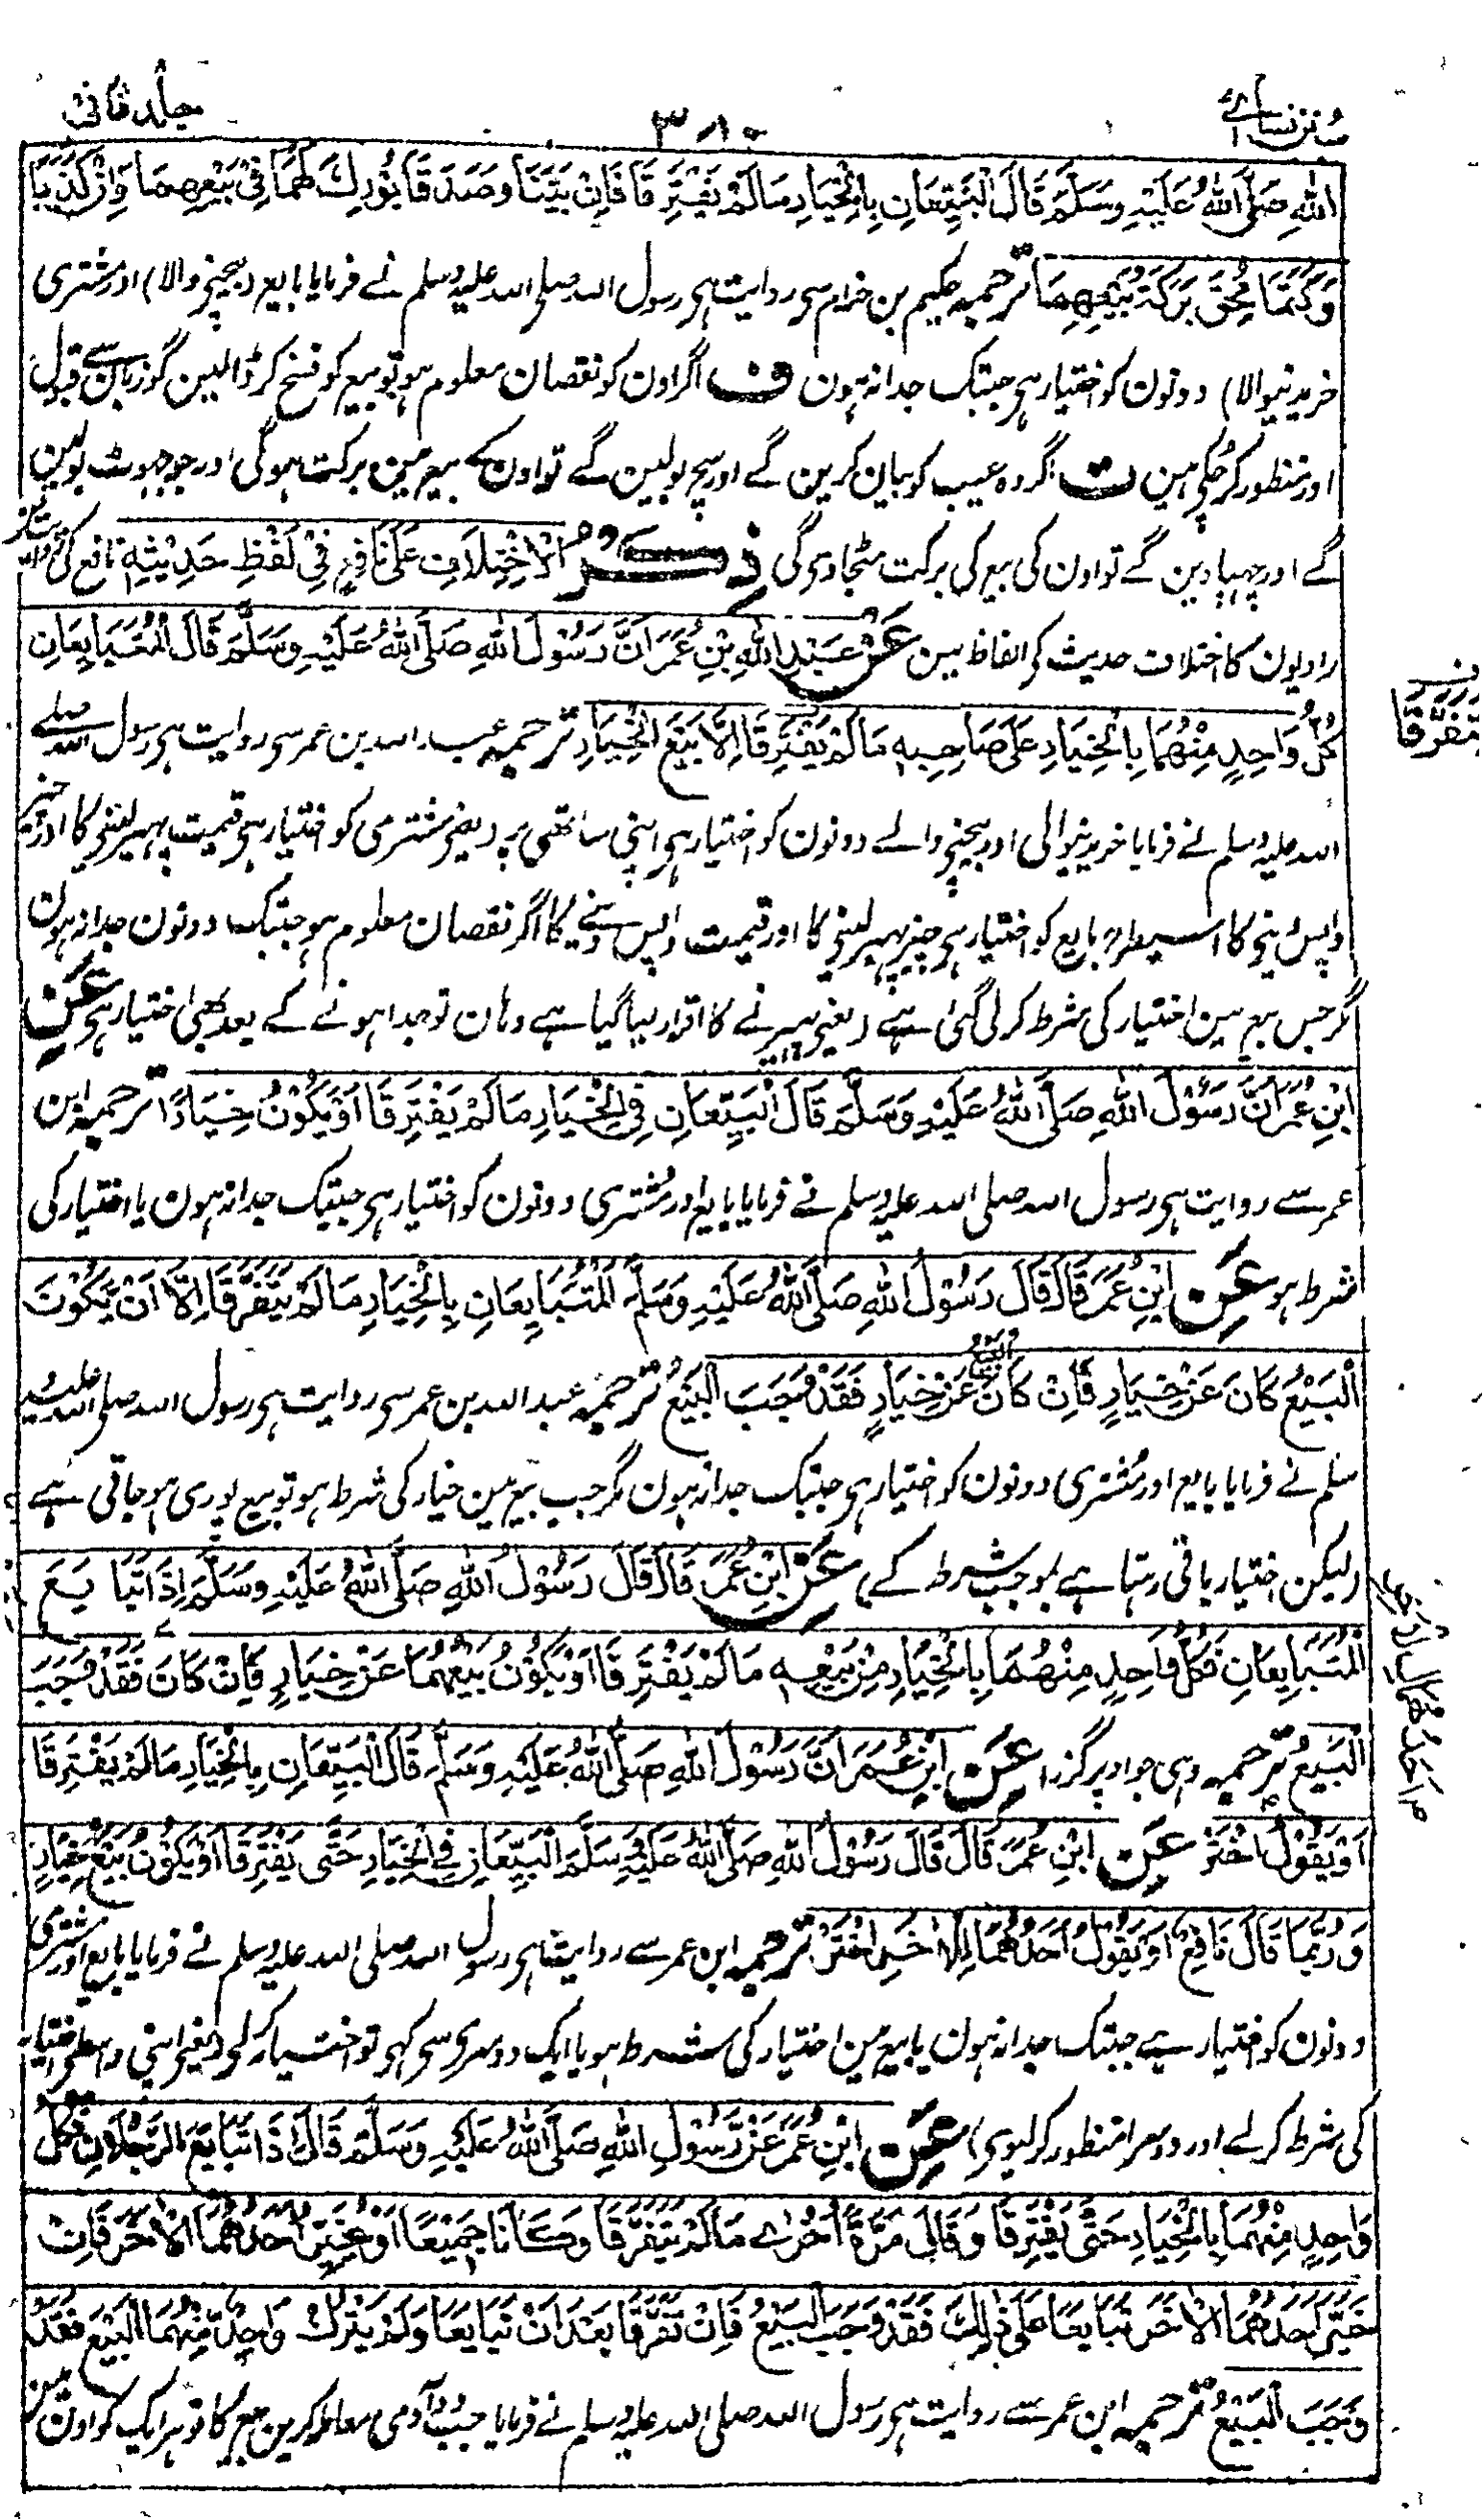 سنن نسائی
۳۸۰
جلد ثانی
اللهِ صَلَّى اللهُ عَلَيْهِ وَسَلَّمَ قَالَ الْبَيِّعَانِ بِالْخِيَارِ مَالَمْ يَفْتَرِقَا فَاِنْ بَيَّنَا وَصَدَقَا بُوْرِكَ لَهُمَا فِيْ بَيْعِهِمَا وَاِنْ كَذَبَا
وَكَتَمَا مُحِقَ بَرَكَةُ بَيْعِهِمَا ترجمہ حکیم بن حزام سے روایت ہے رسول اللہ صلی اللہ علیہ وسلم نے فرمایا بایع (بیچنے والا) اور مشتری
خریدنیوالا) دونون کو اختیار ہے جبتک جدا نہون ف اگر اون کو نقصان معلوم ہو تو بیع کو فسخ کر ڈالین گو زبان سے قبول
اور منظور کر چکے ہین ت اگر وہ عیب کو بیان کرین گے اور سچ بولین گے تو اون کے بیع مین برکت ہوگی اور جو جھوٹ بولین
گے اور چھپا دین گے تو اون کی بیع کی برکت مٹجاویگی ذِكْرُ الْاِخْتِلَافِ عَلٰى نَافِعٍ فِيْ لَفْظِ حَدِيْثِهٖ نافع کی
راویون کا اختلاف حدیث کے الفاظ مین عَنْ عَبْدِ اللهِ بْنِ عُمَرَ اَنَّ رَسُوْلَ اللهِ صَلَّى اللهُ عَلَيْهِ وَسَلَّمَ قَالَ الْمُتَبَايِعَانِ
كُلُّ وَاحِدٍ مِنْهُمَا بِالْخِيَارِ عَلٰى صَاحِبِهٖ مَالَمْ يَفْتَرِقَا اِلَّا بَيْعَ الْخِيَارِ ترجمہ عبد اللہ بن عمر سے روایت ہے رسول اللہ صلے
يتفرقا
اللہ علیہ وسلم نے فرمایا خریدنیوالی اور بیچنے والے دونون کو اختیار ہے اپنی ساتھی پر (یعنے مشتری کو اختیار ہے قیمت پھیر لینے کا اور چیز
واپس دینے کا اسیطرح بایع کو اختیار ہے چیز پھیر لینے کا اور قیمت واپس دینے کا اگر نقصان معلوم ہو جبتک دونون جدا نہون
مگر جس بیع مین اختیار کی شرط کر لی گئی ہے (یعنے پھیرنے کا اقرار لیا گیا ہے وہان تو جدا ہونے کے بعد بھی اختیار ہے عَنِ
ابْنِ عُمَرَ اَنَّ رَسُوْلَ اللهِ صَلَّى اللهُ عَلَيْهِ وَسَلَّمَ قَالَ الْبَيِّعَانِ فِي الْخِيَارِ مَالَمْ يَفْتَرِقَا اَوْ يَكُوْنُ خِيَارًا ترجمہ ابن
عمر سے روایت ہے رسول اللہ صلی اللہ علیہ وسلم نے فرمایا بایع اور مشتری دونون کو اختیار ہے جبتک جدا نہون یا اختیار کی
شرط ہو عَنِ ابْنِ عُمَرَ قَالَ قَالَ رَسُوْلُ اللهِ صَلَّى اللهُ عَلَيْهِ وَسَلَّمَ الْمُتَبَايِعَانِ بِالْخِيَارِ مَالَمْ يَتَفَرَّقَا اِلَّا اَنْ يَكُوْنَ
الْبَيْعُ كَانَ عَنْ خِيَارٍ فَاِنْ كَانَ البَيْعُ عَنْ خِيَارٍ فَقَدْ وَجَبَ الْبَيْعُ ترجمہ عبد اللہ بن عمر سے روایت ہے رسول اللہ صلی اللہ علیہ و
سلم نے فرمایا بایع اور مشتری دونون کو اختیار ہے جبتک جدا نہون مگر جب بیع مین خیار کی شرط ہو تو بیع پوری ہو جاتی ہے
(لیکن اختیار باقی رہتا ہے بموجب شرط کے) عَنِ ابْنِ عُمَرَ قَالَ قَالَ رَسُوْلُ اللهِ صَلَّى اللهُ عَلَيْهِ وَسَلَّمَ اِذَا تَبَايَعَ
الْمُتَبَايِعَانِ فَكُلُّ وَاحِدٍ مِنْهُمَا بِالْخِيَارِ مِنْ بَيْعِهٖ مَالَمْ يَفْتَرِقَا اَوْ يَكُوْنُ بَيْعُهُمَا عَنْ خِيَارٍ فَاِنْ كَانَ فَقَدْ وَجَبَ
الْبَيْعُ ترجمہ وہی جو اوپر گزرا عَنِ ابْنِ عُمَرَ اَنَّ رَسُوْلَ اللهِ صَلَّى اللهُ عَلَيْهِ وَسَلَّمَ قَالَ الْبَيِّعَانِ بِالْخِيَارِ مَالَمْ يَفْتَرِقَا
اَوْ يَقُوْلُ اخْتَرْ عَنِ ابْنِ عُمَرَ قَالَ قَالَ رَسُوْلُ اللهِ صَلَّى اللهُ عَلَيْهِ وَسَلَّمَ الْبَيِّعَانِ فِي الْخِيَارِ حَتّٰى يَفْتَرِقَا اَوْ يَكُوْنُ بَيْعَ خِيَارٍ
وَرُبَّمَا قَالَ نَافِعٌ اَوْ يَقُوْلُ اَحَدُهُمَا لِلْاٰخَرِ اخْتَرْ ترجمہ ابن عمر سے روایت ہے رسول اللہ صلی اللہ علیہ وسلم نے فرمایا بایع اور مشتری
دونون کو اختیار ہے جبتک جدا نہون یا بیع مین اختیار کی شرط ہو یا ایک دوسری سے کہے تو اختیار کر لے (یعنے اپنی واسطے اختیار
کی شرط کر لے اور دوسرا منظور کر لیوے) عَنِ ابْنِ عُمَرَ عَنْ رَسُوْلِ اللهِ صَلَّى اللهُ عَلَيْهِ وَسَلَّمَ قَالَ اِذَا تَبَايَعَ الرَّجُلَانِ فَكُلُّ
وَاحِدٍ مِنْهُمَا بِالْخِيَارِ حَتّٰى يَفْتَرِقَا وَقَالَ مَرَّةً اُخْرٰى مَالَمْ يَتَفَرَّقَا وَكَانَا جَمِيْعًا اَوْ يُخَيِّرَ اَحَدُهُمَا الْاٰخَرَ فَاِنْ
خَيَّرَ اَحَدُهُمَا الْاٰخَرَ فَتَبَايَعَا عَلٰى ذٰلِكَ فَقَدْ وَجَبَ الْبَيْعُ فَاِنْ تَفَرَّقَا بَعْدَ اَنْ تَبَايَعَا وَلَمْ يَتْرُكْ وَاحِدٌ مِنْهُمَا الْبَيْعَ فَقَدْ
وَجَبَ الْبَيْعُ ترجمہ ابن عمر سے روایت ہے رسول اللہ صلی اللہ علیہ وسلم نے فرمایا جب دو آدمی معاملہ کرین بیع کا تو ہر ایک کو اون مین